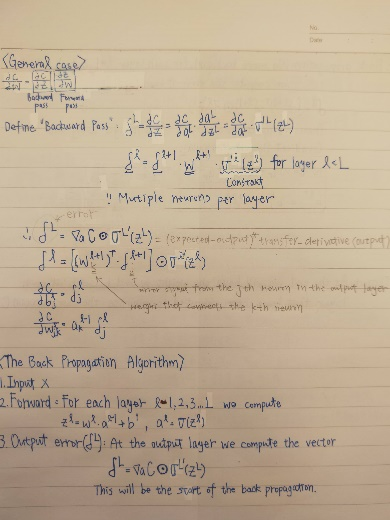 No.
Date
<General case>
∂C/∂W = ∂C/∂Z ∂Z/∂W
Backward pass Forward pass
Define "Backward Pass" : δ^L = ∂C/∂Z^L = ∂C/∂a^L · ∂a^L/∂z^L = ∂C/∂a^L · σ'^L(z^L)
δ^l = δ^{l+1} · w^{l+1} · σ'^l(z^l) for layer l<L
Constant
∵ Mutiple neurons per layer
error
∴ δ^L = ∇a C ⊙ σ^L'(z^L) = (expected-output) * transfer-derivative (output)
δ^l = [(w^{l+1})^T · δ^{l+1}] ⊙ σ^l'(z^l)
error signal from the j-th neuron in the output layer
∂C/∂b_j^l = δ_j^l
weight that connects the k-th neuron
∂C/∂w_jk^l = a_k^{l-1} δ_j^l
<The Back Propagation Algorithm>
1. Input X
2. Forward = For each layer l=1,2,3...L we compute
z^l = w^l · a^{l-1} + b^l , a^l = σ(z^l)
3. Output error(δ^L): At the output layer we compute the vector
δ^L = ∇a C ⊙ σ^L'(z^L)
This will be the start of the back propagation.